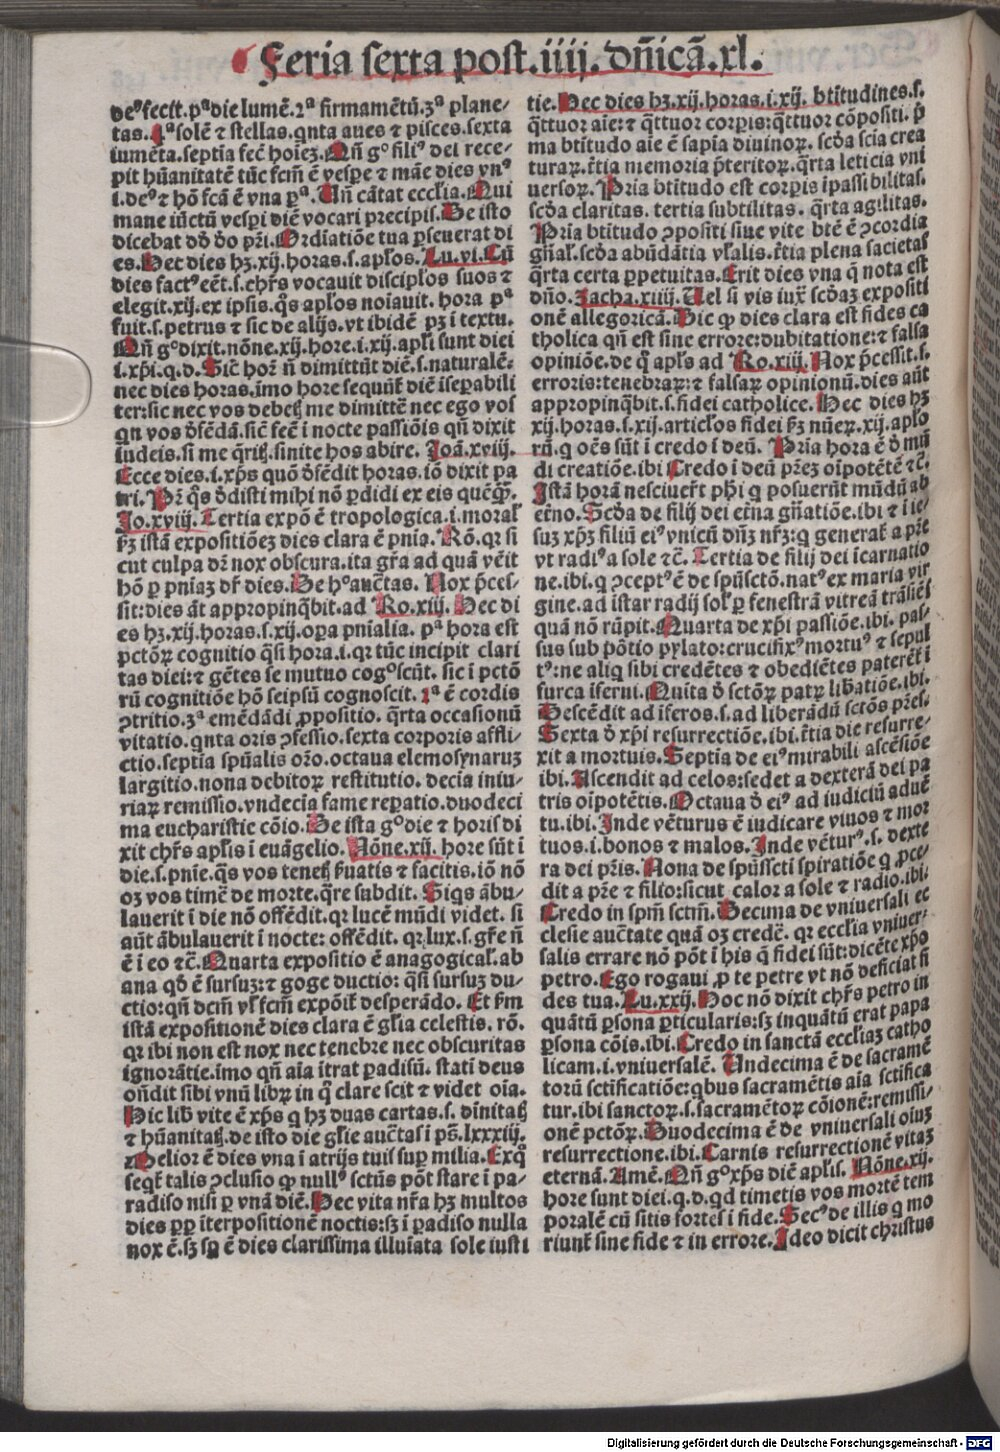 Feria sexta post .iiij. dn̄icā .xl.
deꝰ fecit. pᵃ die lumē. 2ᵃ firmamētū. 3ᵃ plane⸗
tas. 4ᵃ solē ⁊ stellas. qnta aues ⁊ pisces. sexta
iumēta. septīa fec̄ hoīez. Qn̄ gᵒ filiꝰ dei rece⸗
pit hūanitatē tūc fcm̄ ē vespe ⁊ māe dies vnꝰ
i. deꝰ ⁊ hō fcā ē vna pᵃ. Un̄ cātat ecclīa. Qui
mane iūctū vespi diē vocari precipis. De isto
dicebat dd̄ do pr̄i. Ordīatiōe tua pseuerat di
es. Hec dies hꝫ .xij. horas. s. apl̄os. Lu. vi. Cū
dies factꝰ eēt. s. chr̄s vocauit disciplos suos ⁊
elegit .xij. ex ipsis. q̄s apl̄os noīauit. hora pᵃ
fuit. s. petrus ⁊ sic de alijs. vt ibidē pꝫ ī textu.
Qn̄ gᵒ dixit. nōne .xij. hore. i. xij. apl̄i sunt diei
i. xp̄i. q. d. Sic̄ hor̄ n̄ dimittūt diē. s. naturalē:
nec dies horas. imo hore sequūt̄ diē iseꝑabili
ter: sic nec vos debetꝫ me dimittē nec ego vos
qn vos dēfēdā. sic̄ feci ī nocte passiōis qn̄ dixit
iudeis. si me q̄ritꝫ. sinite hos abire. Joā. xviij.
Ecce dies. i. xp̄s quō dēfēdit horas. iō dixit pa
tri. Pr̄ q̄s dedisti mihi nō ꝑdidi ex eis quēq̄.
Jo. xviij. Tertia expō ē tropologica. i. moral̄
ẜm istā expositiōeꝫ dies clara ē pn̄ia. Rō. qꝛ si
cut culpa dꝛ nox obscura. ita gr̄a ad quā vēit
hō ꝑ pn̄iaꝫ dr̄ dies. De hᵒ auct̄tas. Nox p̄ces⸗
sit: dies āt appropinq̄bit. ad Ro. xiij. Hec di
es hꝫ .xij. horas. s. xij. oꝑa pn̄ialia. pᵃ hora est
pctōꝝ cognitio q̄si hora. i. qꝛ tūc incipit clari
tas diei: ⁊ gētes se mutuo cogᵒscūt. sic ī pctō
rū cognitiōe hō seipsū cognoscit. 2ᵃ ē cordis
ↄtritio. 3ᵃ emēdādi ꝓpositio. q̄rta occasionū
vitatio. qnta oris ↄfessio. sexta corporis affli⸗
ctio. septīa spūalis or̄o. octaua elemosynaruꝫ
largitio. nona debitoꝝ restitutio. decīa iniu⸗
riaꝝ remissio. vndecīa fame reꝑatio. duodeci
ma eucharistie cōio. De ista gᵒ die ⁊ horis di
xit chr̄s apl̄is i euāgelio. Nōne .xij. hore sūt ī
die. s. pn̄ie. q̄s vos tenetꝫ ẜuatis ⁊ facitis. iō nō
oꝫ vos timē de morte. q̄re subdit. Siqs ābu⸗
lauerit ī die nō offēdit. qꝛ lucē mūdi videt. si
aūt ābulauerit ī nocte: offēdit. qꝛ lux. s. gr̄e n̄
ē ī eo ⁊c̄. Quarta expositio ē anagogical̄. ab
ana qd̄ ē sursuꝫ: ⁊ goge ductio: q̄si sursuꝫ du⸗
ctio: qn̄ dcm̄ vl̄ fcm̄ expōit̄ desperādo. Et ẜm
istā expositionē dies clara ē gl̄ia celestis. rō.
qꝛ ibi non est nox nec tenebre nec obscuritas
ignorātie. imo qn̄ aīa itrat ꝑadisū. stati deus
on̄dit sibi vnū libꝝ in q̄ clare scit ⁊ videt oīa.
Hic lib vite ē xp̄s q hꝫ duas cartas. s. dīnitatꝫ
⁊ hūanitatꝫ. de isto die gl̄ie auct̄as i ps̄. lxxxiij.
Melioꝛ ē dies vna ī atrijs tuis suꝑ milia. Exq̄
seqt̄ talis ↄclusio ꝙ nullꝰ sctūs pōt stare ī pa⸗
radiso nisi ꝑ vnā diē. Hec vita nr̄a hꝫ multos
dies ꝓꝑ īterpositionē noctis: sꝫ ī ꝑadiso nulla
nox ē. sꝫ sꝑ ē dies clarissima illuīata sole iusti
tie. Hec dies hꝫ .xij. horas. i. xij. btitudines. s.
q̄ttuor aīe: ⁊ q̄ttuor corpis: q̄ttuor cōpositi. p̄
ma btitudo aīe ē sapīa diuinoꝝ. scd̄a scīa crea
turaꝝ. t̄tia memoria p̄teritoꝝ. q̄rta leticia vni
uersoꝝ. Pria btitudo est corpis ipassibilitas.
scd̄a claritas. tertia subtilitas. q̄rta agilitas.
Pria btitudo ↄpositi siue vite btē ē ↄcordia
gn̄al̄. scd̄a abūdātia vl̄alis. t̄tia plena sacietas
q̄rta certa ꝑpetuitas. Erit dies vna q̄ nota est
dn̄o. Zacha. xiiij. Uel si vis iux̄ scd̄aꝫ expositi
onē allegoricā. Dic ꝙ dies clara est fides ca
tholica qn̄ est sine errore: dubitatione: ⁊ falsa
opiniōe. de q̄ apl̄s ad Ro. xiij. Nox p̄cessit. s.
erroris: tenebraꝝ: ⁊ falsaꝝ opinionū. dies aūt
appropinq̄bit. s. fidei catholice. Hec dies hꝫ
xij. horas. s. xij. articl̄os fidei ẜm nūeꝝ. xij. apl̄o
rū. q oēs sūt ī credo ī deū. Pria hora ē de mū
di creatiōe. ibi Credo ī deū pr̄eꝫ oīpotētē ⁊c̄.
Istā horā nesciuer̄t phi q posuerūt mūdū ab
et̄no. Scd̄a de filij dei et̄na gn̄atiōe. ibi ⁊ ī ie⸗
suꝫ xp̄ꝫ filiū eiꝰ vnicū dn̄ꝫ nr̄ꝫ: q generat̄ a pr̄e
vt radiꝰ a sole ⁊c̄. Tertia de filij dei icarnatio
ne. ibi. q ↄceptꝰ ē de spūsctō. natꝰ ex maria vir
gine. ad īstar radij sol̄ ꝑ fenestrā vitreā trāsiēs
quā nō rūpit. Quarta de xp̄i passiōe. ibi. pas⸗
sus sub pōtio pylato: crucifixꝰ mortuꝰ ⁊ sepul
tꝰ: ne aliq sibi credētes ⁊ obediētes pateret̄ ī
furca iferni. Quita de sctōꝝ patꝝ libatiōe. ibi.
Descēdit ad iferos. s. ad liberādū sctōs pr̄es.
Sexta de xp̄i resurrectiōe. ibi. t̄tia die resurre⸗
xit a mortuis. Septīa de eiꝰ mirabili ascēsiōe
ibi. Ascendit ad celos: sedet a dexterā dei pa
tris oīpotētis. Octaua de eiꝰ ad iudiciū aduē
tu. ibi. Inde vēturus ē iudicare viuos ⁊ mor
tuos. i. bonos ⁊ malos. Inde vēturꝰ. s. dexte
ra dei pr̄is. Nona de spūsscti spiratiōe q ꝓce⸗
dit a pr̄e ⁊ filio: sicut calor a sole ⁊ radio. ibi.
Credo in spm̄ sctm̄. Decima de vniuersali ec
clesie auct̄ate quā oꝫ credē. qꝛ ecclīa vniuer⸗
salis errare nō pōt ī his q̄ fidei sūt: dicēte xp̄o
petro. Ego rogaui ꝓ te petre vt nō deficiat fi
des tua. Lu. xxij. Hoc nō dixit chr̄s petro in
quātū ꝑsona ꝑticularis: sꝫ inquātū erat papa
ꝑsona cōis. ibi. Credo in sanctā eccliaꝫ catho
licam. i. vniuersalē. Undecima ē de sacramē
torū sctificatiōe: qbus sacramētis aīa sctifica
tur. ibi sanctoꝝ. s. sacramētoꝝ cōionē: remissi⸗
onē pctōꝝ. Duodecima ē de vniuersali oīuꝫ
resurrectione. ibi. Carnis resurrectionē vitaꝫ
eternā. Amē. Qn̄ gᵒ xp̄s diē apl̄is. Nōne .xij.
hore sunt diei. q. d. qd timetis vos mortē tem
poralē cū sitis fortes ī fide. Secꝰ de illis q mo
riunt̄ sine fide ⁊ in errore. Ideo dicit christus
Digitalisierung gefördert durch die Deutsche Forschungsgemeinschaft - DFG